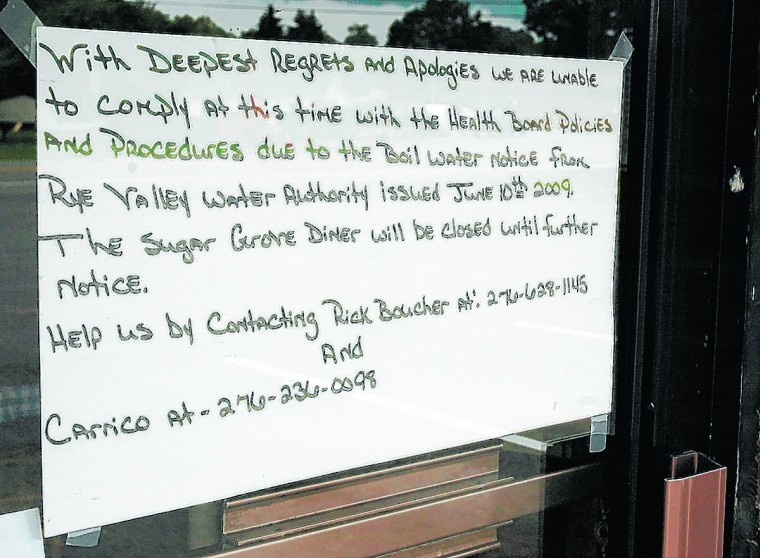 With Deepest Regrets and Apologies we are unable
to comply at this time with the Health Board Policies
And Procedures due to the Boil water notice from
Rye Valley Water Authority issued June 10th 2009.
The Sugar Grove Diner will be closed until further
notice.
Help us by Contacting Rick Boucher at: 276-628-1145
And
Carrico at - 276-236-0098